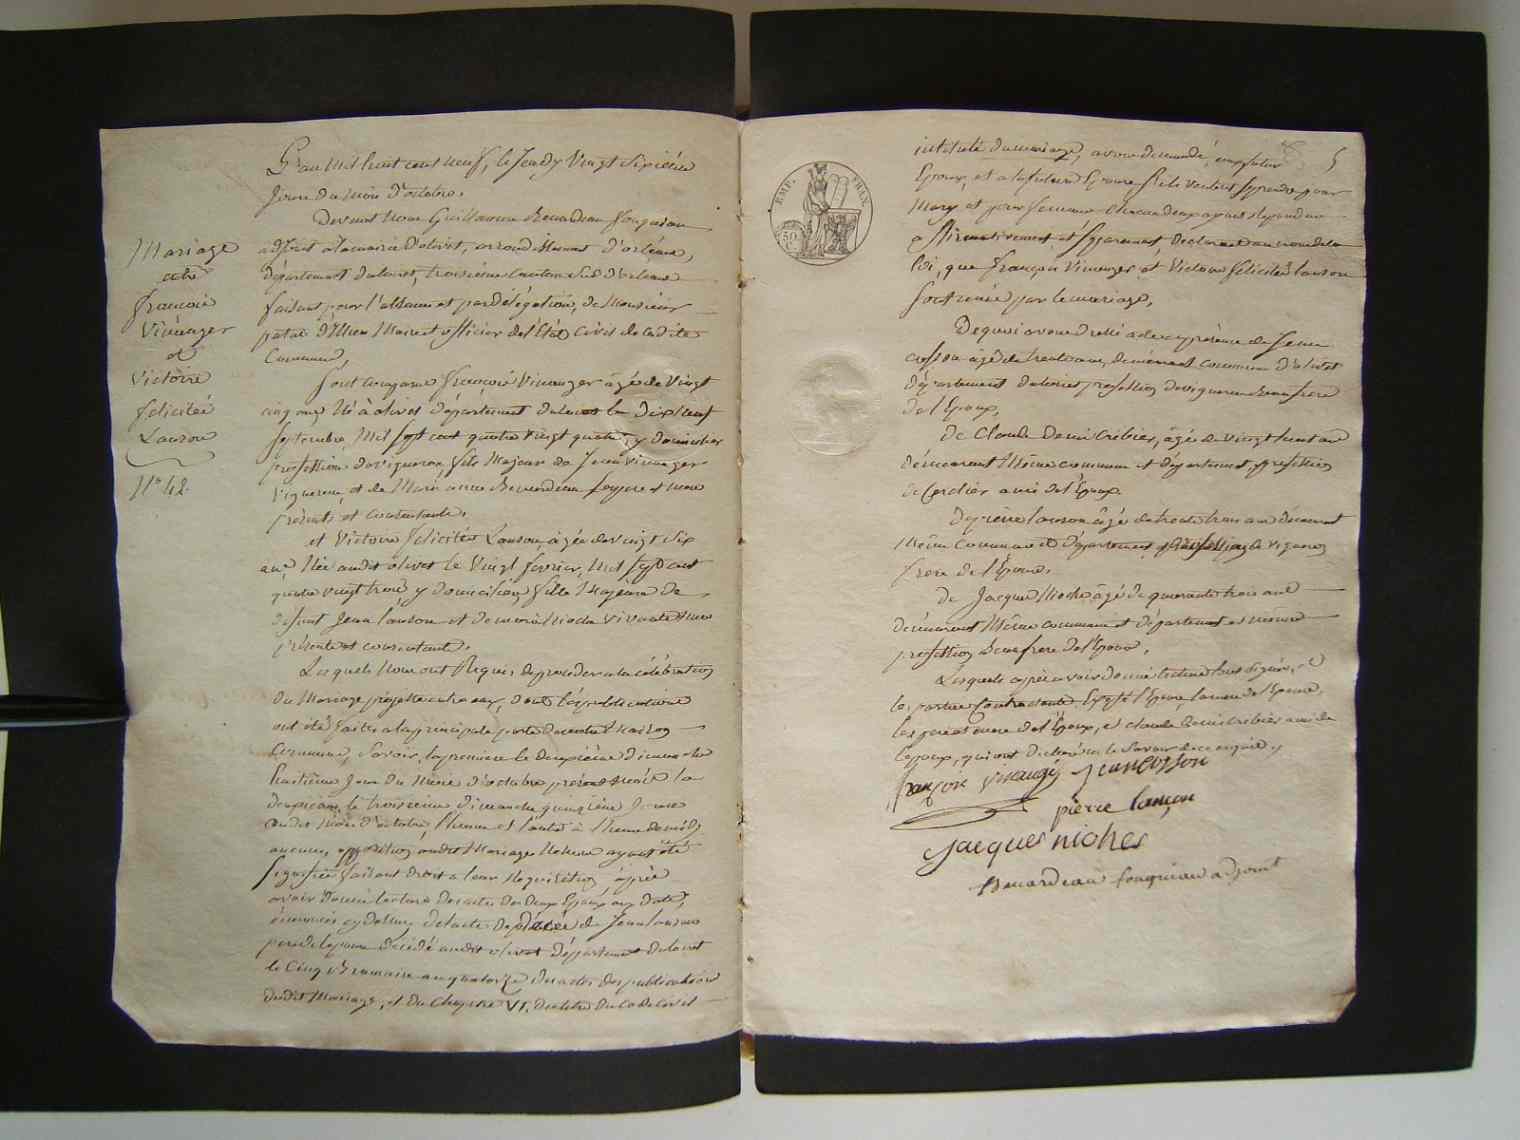 Mariage
entre
françois
Vinauger
et
Victoire
felicité
Lanson
N° 42.
L'an mil huit cent neuf, le Jeudy Vingt Sixième
Jour du mois d'octobre.
Devant Nous Guillaume Benardeau Fouqueau
adjoint à la mairie d'olivet, arrondissement d'orléans,
département du loiret, troisième Canton Sud d'orleans
faisant pour l'absence et par délégation, de Monsieur
maire et officier de l'État Civil de ladite
Commune,
Sont comparus françois Vinauger âgé de Vingt
cinq ans, Né à olivet département du loiret le dix huit
Septembre Mil Sept cent quatre Vingt quatre, y domicilié
profession de vigneron, fils Majeur de Jean Vinauger
Vigneron, et de Marie anne Benardeau Ses pere et mere
présents et consentants.
et Victoire felicité Lanson, âgée de vingt Six
ans Née audit olivet le Vingt fevrier, Mil Sept cent
quatre vingt trois y domiciliée, fille Majeure de
defunt Jean lanson et de marie Nioche vivante Sa mere
présente et consentante.
Lesquels Nous ont Requis de proceder a la célébration
du Mariage projetté entre eux, dont les publications
ont été faites a la principale porte de notre Maison
Commune, Savoir, la premiere le deuxième dimanche
huitième Jour du Mois d'octobre présent mois la
deuxième le troisième dimanche, quinzième Jour
dudit Mois d'octobre, l'heure et l'autre à l'heure de midy
aucune opposition audit Mariage Ne Nous ayant été
Signifiée faisant droit a leur Requisition, après
avoir donné lecture des actes des deux Epoux aux dates,
énoncées cy dessus, de l'acte de décès de Jean lanson
pere de l'epouse décédé audit olivet département du loiret
le Cinq Brumaire an quatorze des actes des publications
dudit Mariage, et du Chapitre VI. du titre du Code Civil
5
EMP. FRAN.
50 C.
intitulé du mariage, avons demandé, au futur
Epoux, et a la future Epouse S'ils veulent Se prendre pour
Mary et pour femme Chacun d'eux ayant répondu
affirmativement et Séparement Declarons au nom de la
loi, que françois Vinauger et Victoire felicité lanson
Sont unis par le mariage,
De quoi avons dressé acte en présence de Jean
Cosson âgé de trente ans, demeurant commune d'olivet
département du loiret profession de vigneron beau frere
de l'Epoux,
de Claude Denis Crébier, âgé de vingt huit ans
démeurant Même commune et département, profession
de Cordier ami de l'Epoux.
de pierre lanson âgé de trente trois ans demeurant
Même Commune et département profession de Vigneron
frere de l'Epouse,
de Jacques Nioche âgé de quarante trois ans
demeurant Même commune et département et même
profession beau frere de l'Epouse,
Lesquels après avoir donné lecture l'ont Signé,
les parties Contractante Excepté l'Epouse, la mere de l'Epouse,
les pere et mere de l'Epoux, et claude denis Crébier ami de
l'epoux, qui ont declaré ne le Savoir de ce enquis.
françois vinauger Jean Cosson
pierre lanson
Jacques nioches
Benardeau fouqueau adjoint